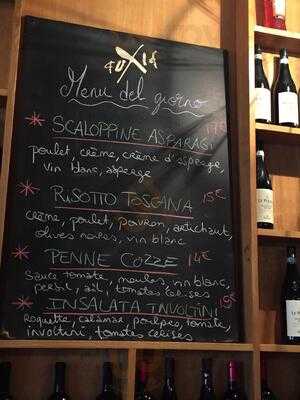 Menu del giorno
* SCALOPPINE ASPARAGI
poulet, crème, crème d'asperge,
vin blanc, asperge
* RISOTTO TOSCANA 15€
crème, poulet, poivron, artichaut,
olives noires, vin blanc
* PENNE COZZE 14€
Sauce tomate, moules, vin blanc,
persil, ail, tomates cerises
* INSALATA INVOLTINI
Roquette, calamar, poulpes, tomate,
involtini, tomates cerises